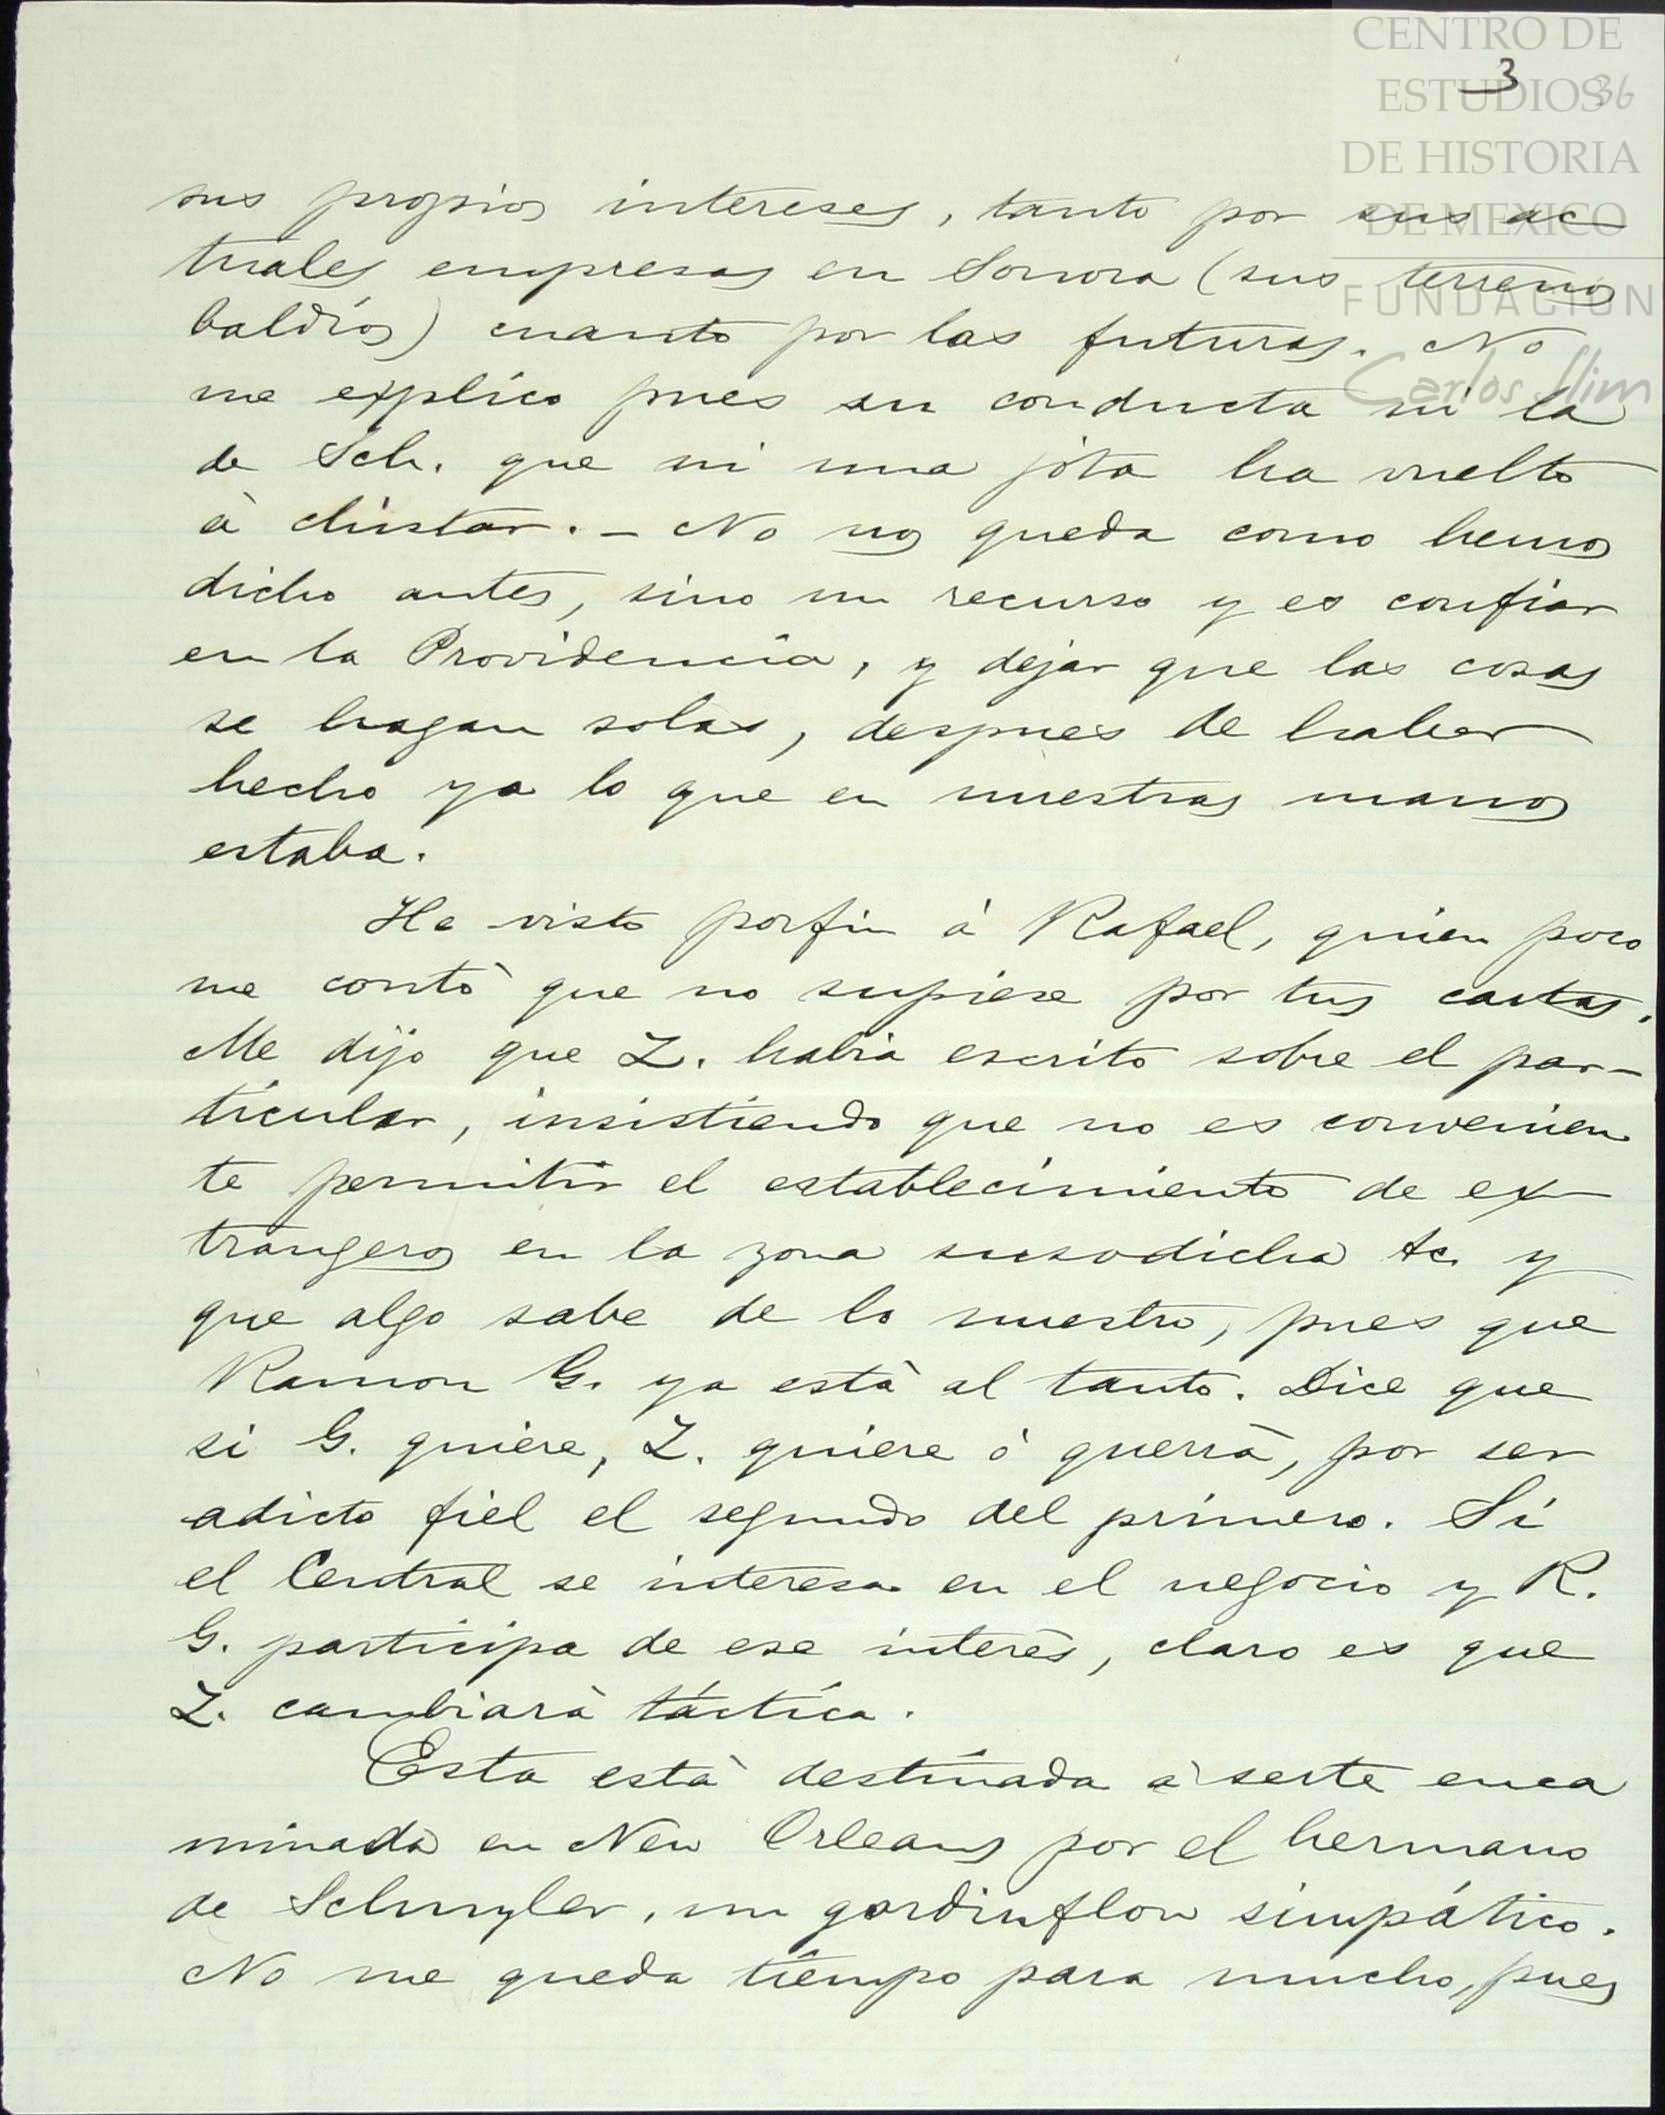 CENTRO DE
ESTUDIOS
DE HISTORIA
DE MEXICO
FUNDACIÓN
Carlos Slim
3
36
sus propios intereses, tanto por sus ac
tuales empresas en Sonora (sus terrenos
baldíos) cuanto por las futuras. No
me explico pues su conducta ni la
de Sch. que ni una jota ha vuelto
à chistar. - No nos queda como hemos
dicho antes, sino un recurso y es confiar
en la Providencia, y dejar que las cosas
se hagan solas, despues de haber
hecho ya lo que en nuestras manos
estaba.
He visto porfin à Rafael, quien poco
me contò que no supiese por tus cartas.
Me dijo que Z. habia escrito sobre el par-
ticular, insistiendo que no es convenien
te permitir el establecimiento de ex-
trangeros en la zona susodicha &c. y
que algo sabe de lo nuestro, pues que
Ramon G. ya està al tanto. Dice que
si G. quiere, Z. quiere ò querrà, por ser
adicto fiel el segundo del primero. Si
el Central se interesa en el negocio y R.
G. participa de ese interès, claro es que
Z. cambiarà táctica.
Esta està destinada à serte enca
minada en New Orleans por el hermano
de Schuyler, un gordinflon simpático.
No me queda tiempo para mucho, pues